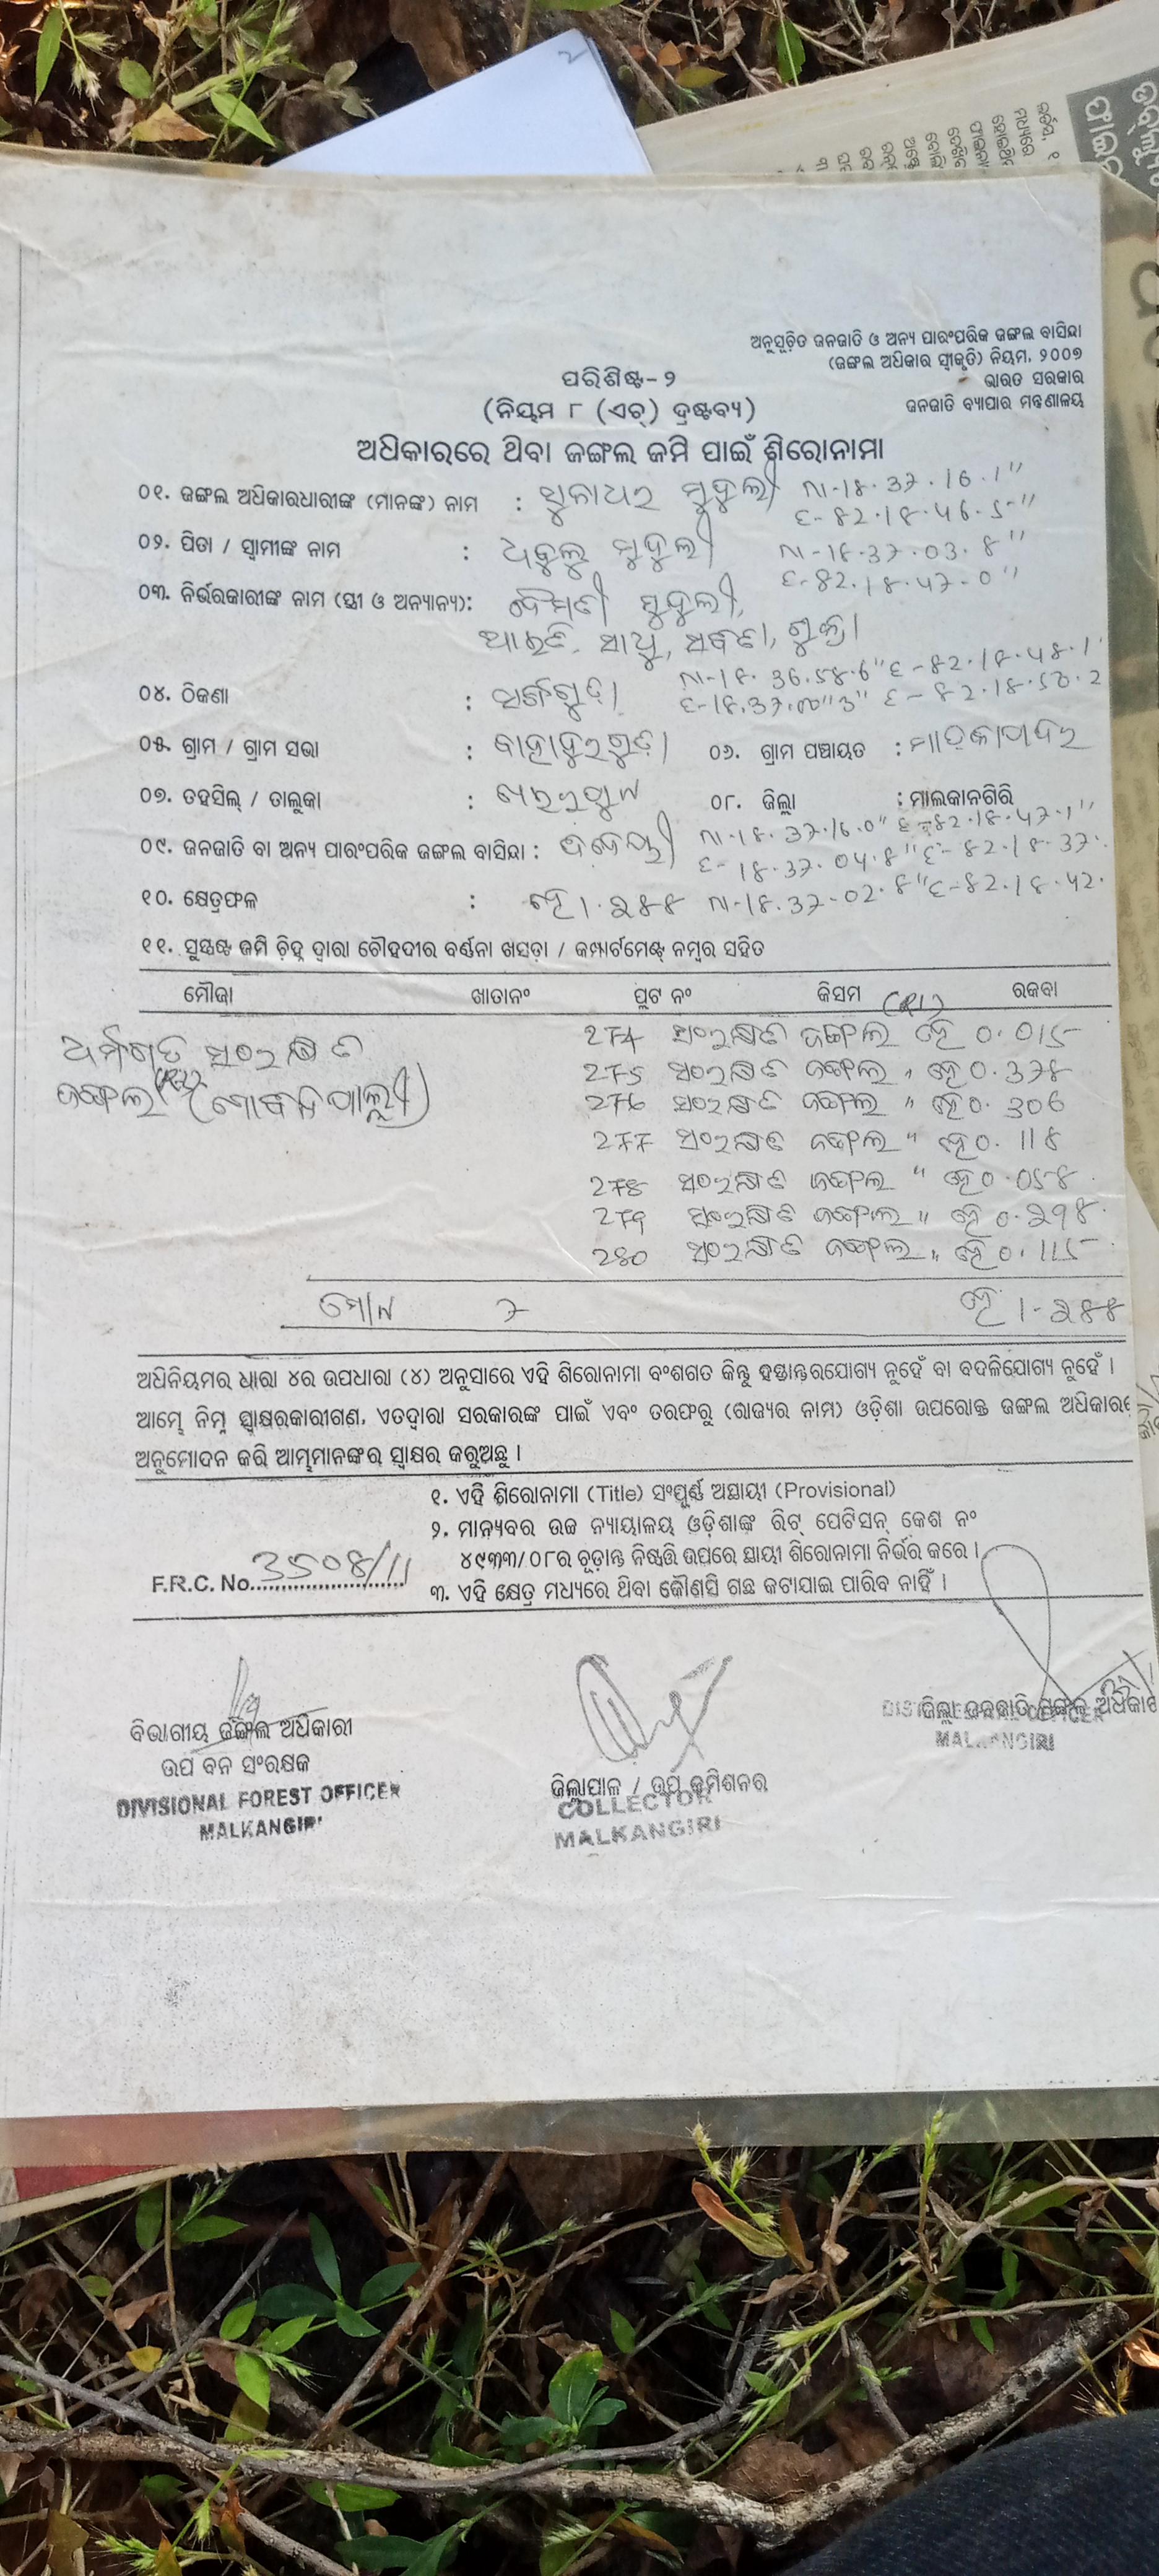 ଅନୁସୂଚିତ ଜନଜାତି ଓ ଅନ୍ୟ ପାରଂପରିକ ଜଙ୍ଗଲ ବାସିନ୍ଦା
(ଜଙ୍ଗଲ ଅଧିକାର ସ୍ୱୀକୃତି) ନିୟମ, ୨୦୦୭
ଭାରତ ସରକାର
ଜନଜାତି ବ୍ୟାପାର ମନ୍ତ୍ରଣାଳୟ
ପରିଶିଷ୍ଟ-୨
(ନିୟମ ୮ (ଏଚ୍) ଦ୍ରଷ୍ଟବ୍ୟ)
ଅଧିକାରରେ ଥିବା ଜଙ୍ଗଲ ଜମି ପାଇଁ ଶିରୋନାମା
୦୧. ଜଙ୍ଗଲ ଅଧିକାରଧାରୀଙ୍କ (ମାନଙ୍କ) ନାମ : ସୁନାଧର ମୁଦୁଲୀ N-18.37.16.1"
E-82.18.46.5"
୦୨. ପିତା / ସ୍ୱାମୀଙ୍କ ନାମ : ଧବୁଲୁ ମୁଦୁଲୀ N-18.37.03.8"
E-82.18.47.0"
୦୩. ନିର୍ଭରକାରୀଙ୍କ ନାମ (ସ୍ତ୍ରୀ ଓ ଅନ୍ୟାନ୍ୟ): ମୁଦୁଲୀ,
ସାଧୁ,
N-18.36.58.6" E-82.18.48.1
୦୪. ଠିକଣା : E-18.37.00"3" E-82.18.50.2
୦୫. ଗ୍ରାମ / ଗ୍ରାମ ସଭା : ବାହାଦୁରଗୁଡ଼ା ୦୬. ଗ୍ରାମ ପଞ୍ଚାୟତ :
୦୭. ତହସିଲ୍ / ତାଲୁକା : ୦୮. ଜିଲ୍ଲା : ମାଲକାନଗିରି
N-18.37.16.0" E-82.18.47.1"
୦୯. ଜନଜାତି ବା ଅନ୍ୟ ପାରଂପରିକ ଜଙ୍ଗଲ ବାସିନ୍ଦା : E-18.37.04.8" E-82.18.37.
୧୦. କ୍ଷେତ୍ରଫଳ : ହେ ୧.୨୫୫ N-18.37-02.8" E-82.18.42.
୧୧. ସୁସ୍ପଷ୍ଟ ଜମି ଚିହ୍ନ ଦ୍ୱାରା ଚୌହଦୀର ବର୍ଣ୍ଣନା ଖସଡ଼ା / କମ୍ପାର୍ଟମେଣ୍ଟ୍ ନମ୍ବର ସହିତ
ମୌଜା ଖାତାନଂ ପ୍ଲଟ ନଂ କିସମ ରକବା
ସଂରକ୍ଷିତ 274 ସଂରକ୍ଷିତ ଜଙ୍ଗଲ ହେ 0.015
ଜଙ୍ଗଲ 275 ସଂରକ୍ଷିତ ଜଙ୍ଗଲ " ହେ 0.378
276 ସଂରକ୍ଷିତ ଜଙ୍ଗଲ " ହେ 0.306
277 ସଂରକ୍ଷିତ ଜଙ୍ଗଲ " ହେ 0.118
278 ସଂରକ୍ଷିତ ଜଙ୍ଗଲ " ହେ 0.058
279 ସଂରକ୍ଷିତ ଜଙ୍ଗଲ " ହେ 0.298
280 ସଂରକ୍ଷିତ ଜଙ୍ଗଲ " ହେ 0.115
ମୋଟ 7 ହେ 1.288
ଅଧିନିୟମର ଧାରା ୪ର ଉପଧାରା (୪) ଅନୁସାରେ ଏହି ଶିରୋନାମା ବଂଶଗତ କିନ୍ତୁ ହସ୍ତାନ୍ତରଯୋଗ୍ୟ ନୁହେଁ ବା ବଦଳିଯୋଗ୍ୟ ନୁହେଁ ।
ଆମ୍ଭେ ନିମ୍ନ ସ୍ୱାକ୍ଷରକାରୀଗଣ, ଏତଦ୍ୱାରା ସରକାରଙ୍କ ପାଇଁ ଏବଂ ତରଫରୁ (ରାଜ୍ୟର ନାମ) ଓଡ଼ିଶା ଉପରୋକ୍ତ ଜଙ୍ଗଲ ଅଧିକାରକୁ
ଅନୁମୋଦନ କରି ଆମ୍ଭମାନଙ୍କର ସ୍ୱାକ୍ଷର କରୁଅଛୁ ।
୧. ଏହି ଶିରୋନାମା (Title) ସଂପୂର୍ଣ୍ଣ ଅସ୍ଥାୟୀ (Provisional)
୨. ମାନ୍ୟବର ଉଚ୍ଚ ନ୍ୟାୟାଳୟ ଓଡ଼ିଶାଙ୍କ ରିଟ୍ ପେଟିସନ୍ କେଶ ନଂ
୪୯୩୩/୦୮ର ଚୂଡ଼ାନ୍ତ ନିଷ୍ପତ୍ତି ଉପରେ ସ୍ଥାୟୀ ଶିରୋନାମା ନିର୍ଭର କରେ ।
F.R.C. No. 3508/11 ୩. ଏହି କ୍ଷେତ୍ର ମଧ୍ୟରେ ଥିବା କୌଣସି ଗଛ କଟାଯାଇ ପାରିବ ନାହିଁ ।
ବିଭାଗୀୟ ଜଙ୍ଗଲ ଅଧିକାରୀ
ଉପ ବନ ସଂରକ୍ଷକ
DIVISIONAL FOREST OFFICER
MALKANGIRI
ଜିଲ୍ଲାପାଳ / ଉପ କମିଶନର
COLLECTOR
MALKANGIRI
ଜିଲ୍ଲା ଜନଜାତି ମଙ୍ଗଳ ଅଧିକାରୀ
MALKANGIRI